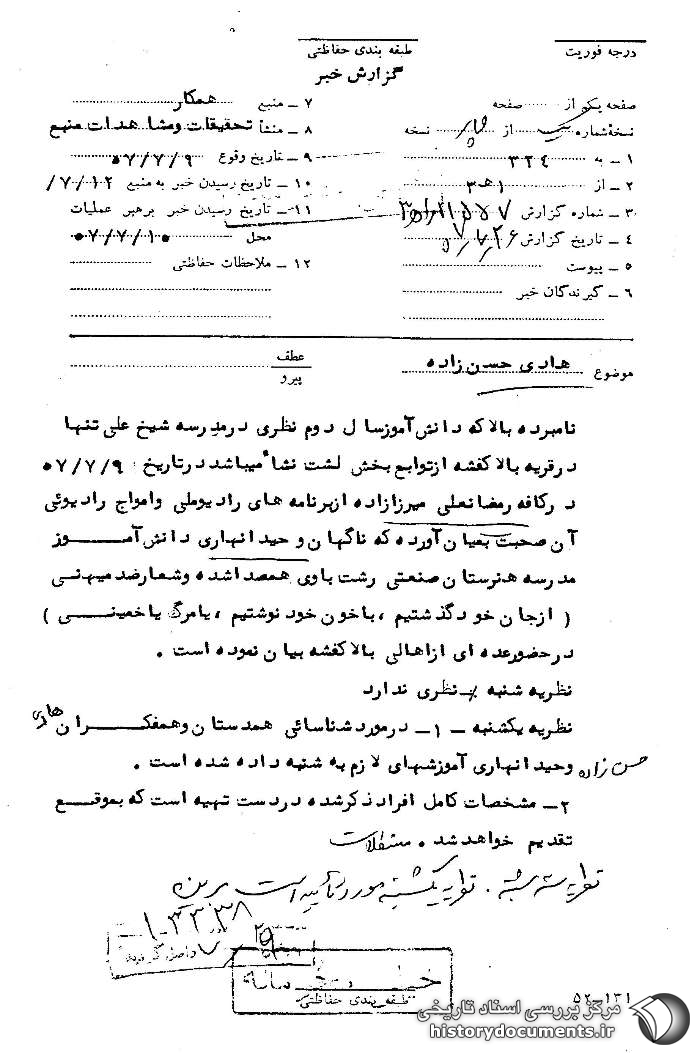 درجه فوریت
طبقه بندی حفاظتی
گزارش خبر
صفحه یکم از صفحه
نسخهٔ شماره یک از چهار نسخه
۱ - به ۳۲۴
۲ - از ۳۰هـ۱
۳ - شماره گزارش
۴ - تاریخ گزارش
۵ - پیوست
۶ - گیرندگان خبر
۷ - منبع همکار
۸ - منشأ تحقیقات ومشاهدات منبع
۹ - تاریخ وقوع ۵۷/۷/۹
۱۰ - تاریخ رسیدن خبر به منبع ۷/۱۲/
۱۱ - تاریخ رسیدن خبر برهبر عملیات
محل ۵۷/۷/۱۰
۱۲ - ملاحظات حفاظتی
موضوع هادی حسن زاده
عطف
پیرو
نامبرده بالا که دانش آموزسال دوم نظری درمدرسه شیخ علی تنها
درقریه بالا کفشه ازتوابع بخش لشت نشاء میباشد درتاریخ ۵۷/۷/۹
در کافه رمضانعلی میرزازاده ازبرنامه های رادیوملی وامواج رادیوئی
آن صحبت بمیان آورده که ناگهان وحید انهاری دانش آمـوز
مدرسه هنرستان صنعتی رشت باوی همصدا شده وشعارضد میهنی
( ازجان خود گذشتیم ، باخون خود نوشتیم ، یامرگ یا خمینـی )
درحضورعده ای ازاهالی بالا کفشه بیان نموده است .
نظریه شنبه - نظری ندارد
نظریه یکشنبه - ۱- درمورد شناسائی همدستان وهمفکـران هادی
حسن زاده وحید انهاری آموزشهای لازم به شنبه داده شده است .
۲- مشخصات کامل افراد ذکرشده دردست تهیه است که بموقـع
تقدیم خواهد شد .
نظریه سه شنبه . نظریه یکشنبه مورد تأیید است
واصل گردید
خیلی محرمانه
طبقه بندی حفاظتی
۵۲-۱۳۱
مرکز بررسی اسناد تاریخی
historydocuments.ir